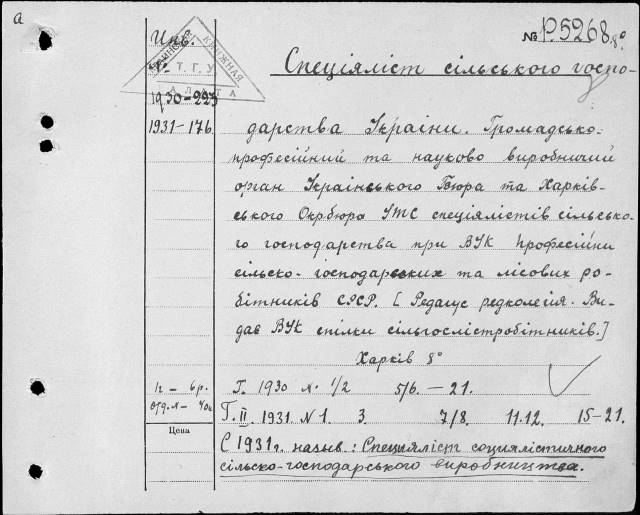 а
№ Р.5268 8°
Инв.
КНИЖНАЯ
Т. Г. У
ПАЛАТА
1930-223
1931-176
Спеціяліст сільського госпо-
дарства України. Громадсько-
професійний та науково виробничий
орган Українського Бюра та Харків-
ського Окрбюра ІТС спеціялістів сільсько-
го господарства при ВУК Професійни
сільсько-господарьских та лісових ро-
бітників СРСР. [Редагує редколегія. Ви-
дає ВУК спілки сільгослістробітників.]
Харків 8°
1г - 6р.
отд.№ - 40к
Г. 1930 №. 1/2 5/6. - 21.
Г. II. 1931. N 1. 3. 7/8. 11.12. 15-21.
Цена
С 1931 г. назыв: Спеціяліст соціялістичного
сільсько-господарського виробництва.